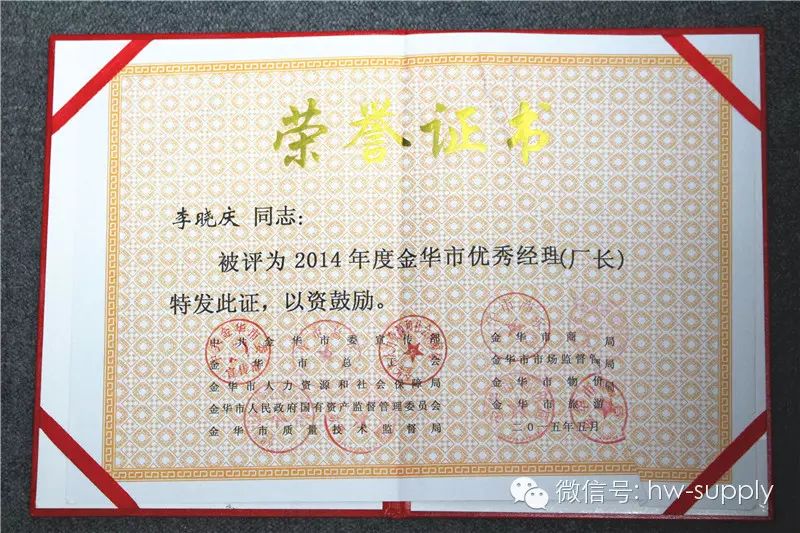 荣誉证书
李晓庆 同志:
被评为 2014 年度金华市优秀经理(厂长)
特发此证,以资鼓励。
中共金华市委宣传部
金华市总工会
金华市人力资源和社会保障局
金华市人民政府国有资产监督管理委员会
金华市质量技术监督局
金华市商 局
金华市市场监督管 局
金华市物价局
金华市旅游
二〇一五年五月
微信号: hw-supply